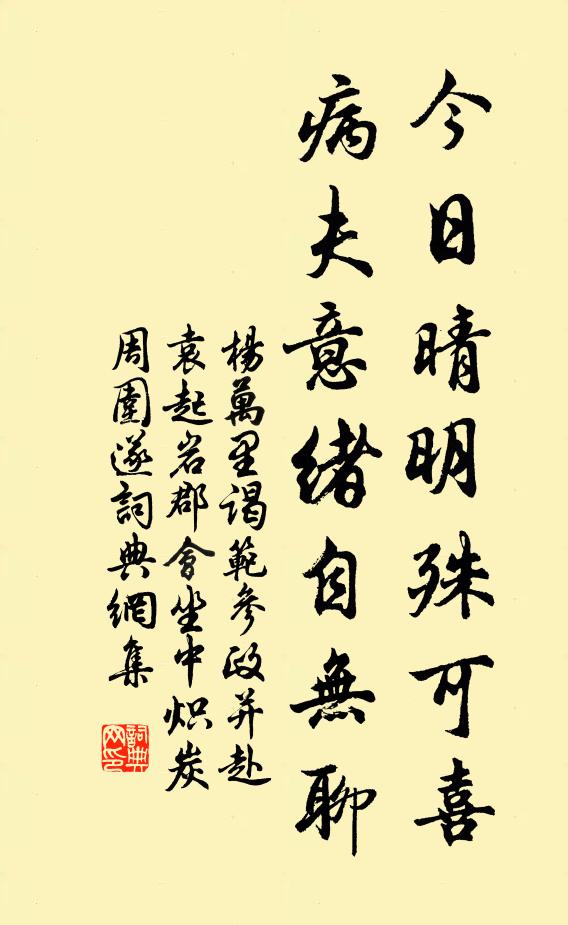 今日晴明殊可喜
病夫意緒自無聊
楊萬里謁範參政并赴
袁起岩郡會坐中炽炭
周圍遂詞典網集
詞典网印